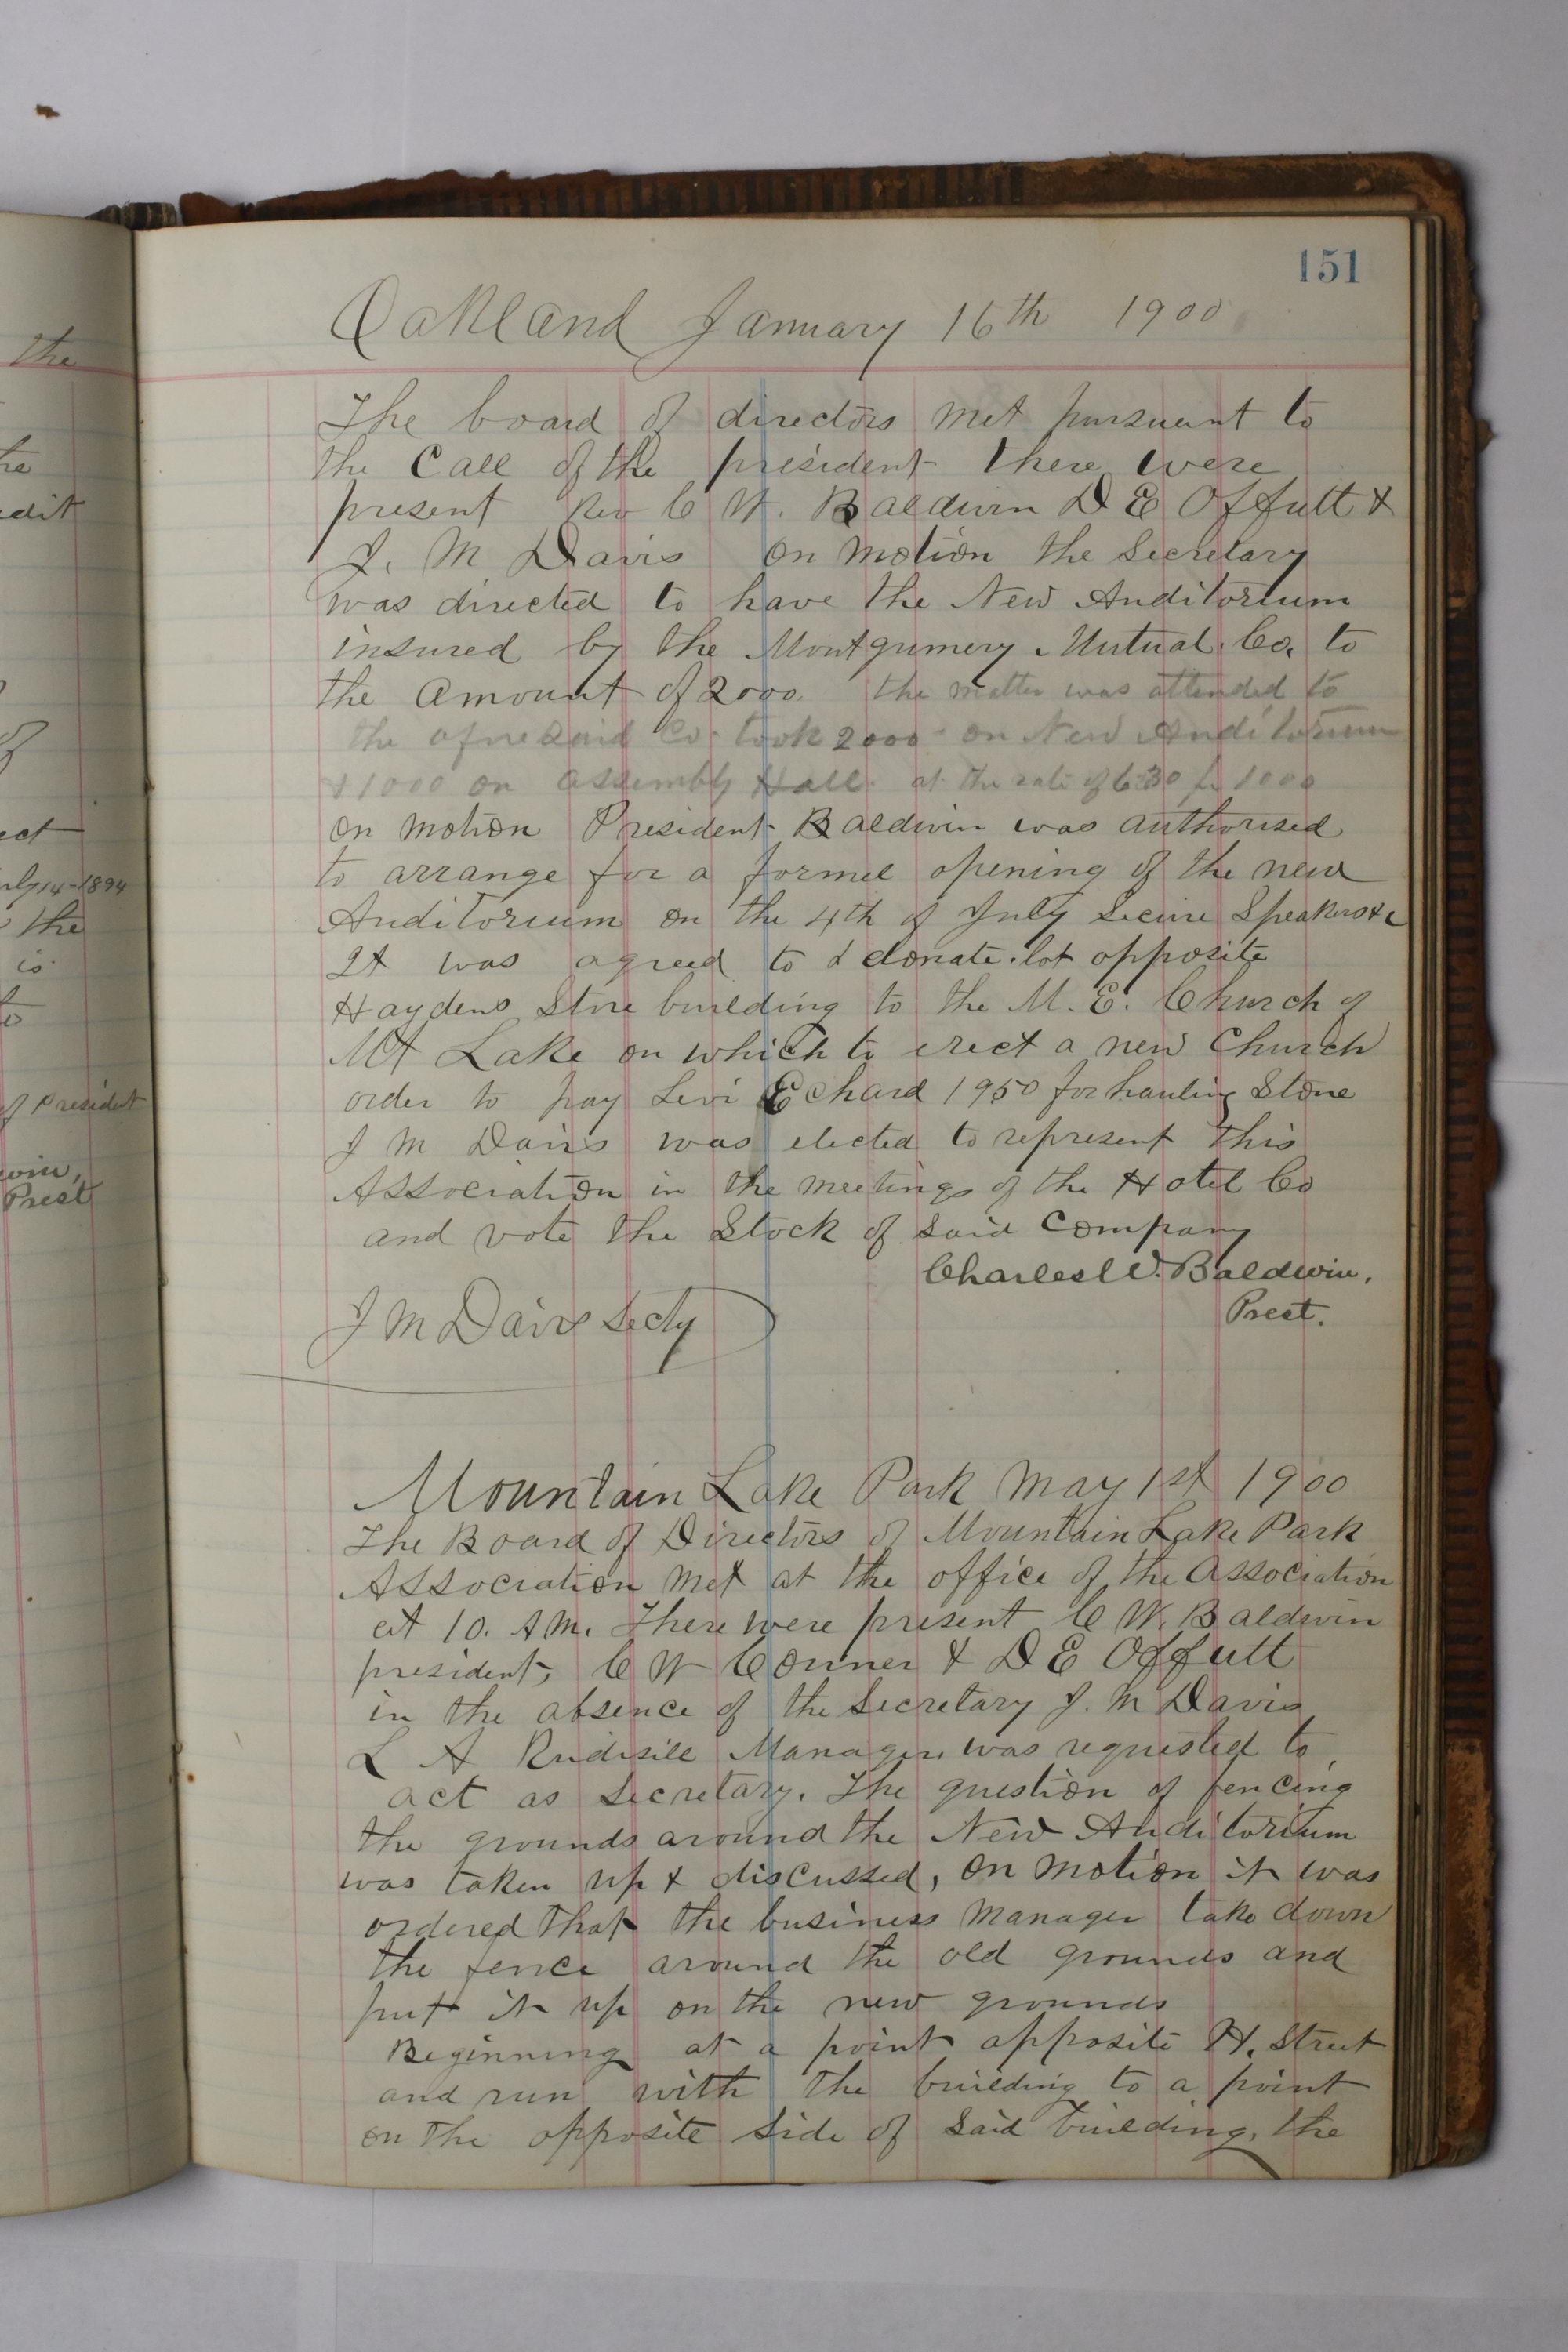 the
he
edit
of
ect
July 14-1894
the
is
to
of President
win,
Prest
151
Oakland January 16th 1900
The board of directors met pursuant to
the Call of the president there were
present Rev C W. Baldwin D E Offutt &
J. M Davis on motion the Secretary
was directed to have the New Auditorium
insured by the Montgumery Mutual Co. to
the Amount of 2000. the matter was attended to
the aforesaid Co. took 2000 on New Auditorium
& 1000 on Assembly Hall at the rate of 6.30 pr 1000
on motion President Baldwin was authorised
to arrange for a formel opening of the new
Auditorium on the 4th of July Secure Speakers &c
It was agreed to donate lot opposite
Haydens Store building to the M. E. Church of
Mt Lake on which to erect a new Church
order to pay Levi Echard 1950 for hauling Stone
J M Davis was elected to represent this
Association in the meetings of the Hotel Co
and vote the Stock of said Company
Charles W. Baldwin,
Prest.
J M Davis Secty
Mountain Lake Park May 1st 1900
The Board of Directors of Mountain Lake Park
Association Met at the office of the Association
at 10. A M. There were present C W. Baldwin
president, C W Conner & D E Offutt
in the absence of the Secretary J. M Davis
L A Rudisill Manager was requested to
act as Secretary. The question of fencing
the grounds around the New Auditorium
was taken up & discussed, on motion it was
ordered that the business Manager take down
the fence around the old grounds and
put it up on the new grounds
Beginning at a point opposite H. Street
and run with the building to a point
on the opposite side of said building, the